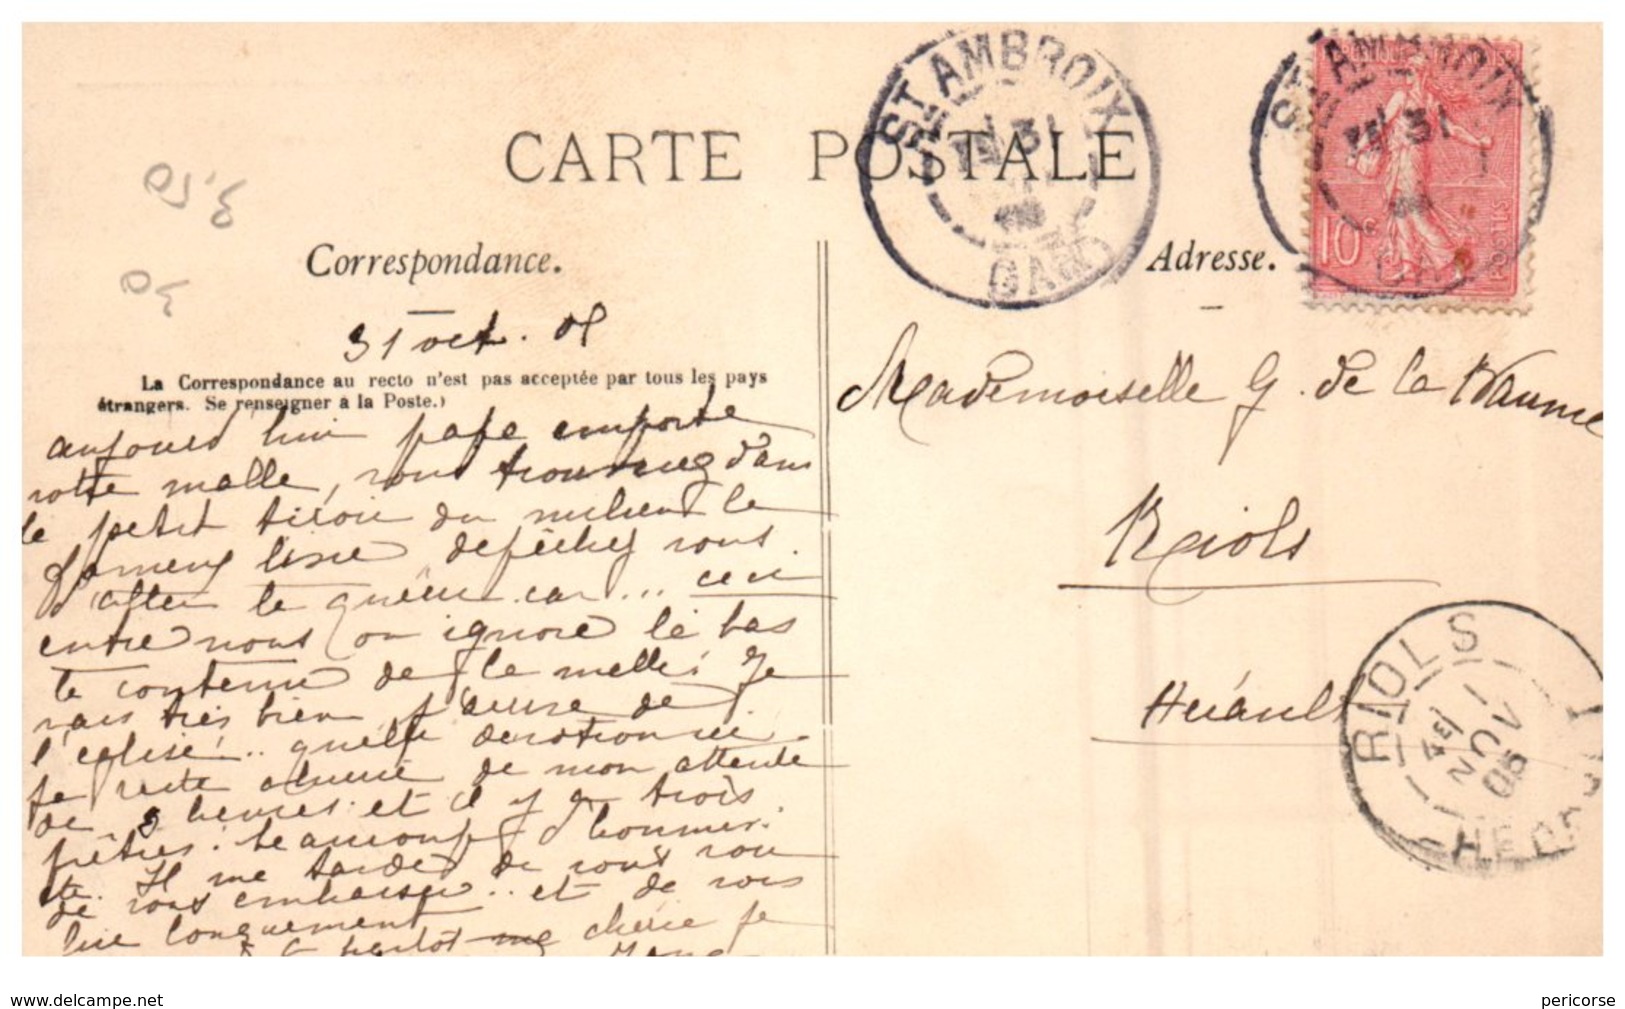 ST AMBROIX
31
GARD
ST AMBROIX
31
GARD
10c
POSTES
CARTE POSTALE
3,50
30
Correspondance.
Adresse.
31 oct. 05
La Correspondance au recto n'est pas acceptée par tous les pays
étrangers. Se renseigner à la Poste.)
aujourd hui papa emporte
votre malle, vous trouverez dans
le petit tiroir du milieu le
fameux livre dépêchez vous
car... ceci
entre nous on ignore là bas
le contenu de la malle! Je
vais très bien, j'arrive de
l'église!.. quelle dévotion
je reste de mon attente
de 3 heures et il y a trois
prêtres. beaucoup d'hommes.
Il me tarde de vous
de vous embrasser.. et de vous
lire longuement
chérie je
Mademoiselle G. de la
Riols
Hérault
RIOLS
1
NOV
05
HERAULT
www.delcampe.net
pericorse